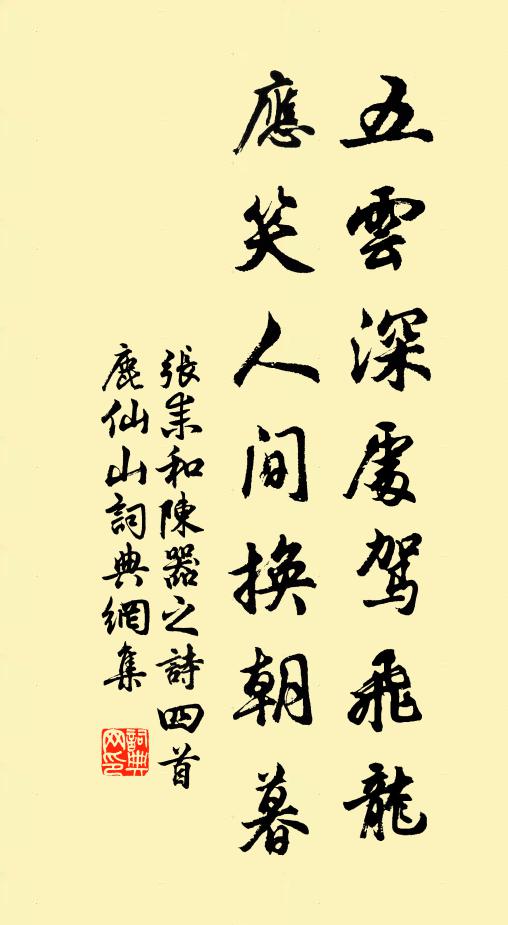 五雲深處駕飛龍
應笑人間換朝暮
張耒和陳器之詩四首
鹿仙山詞典網集
詞典網印